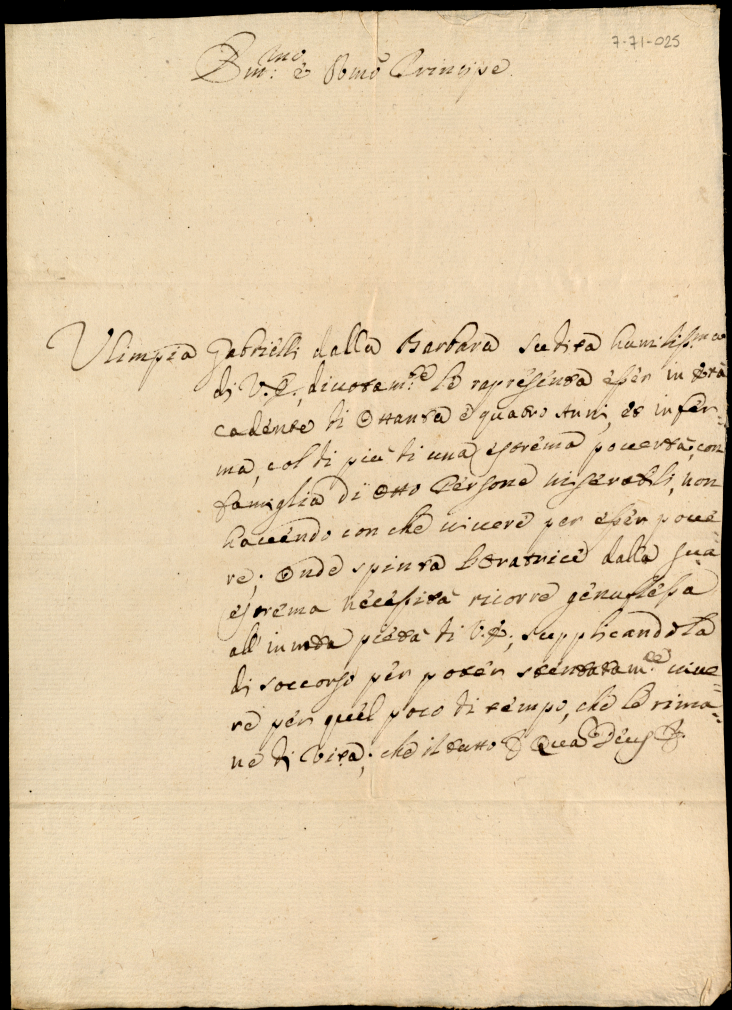 7-71-025
Em:mo e Rmo Principe.
Ulimpia Gabrielli dalla Barbara sudita humilissima
di V. E., divotam:te le rapresenta esser in età
cadente di Ottanta e quatro Anni, et infer-
ma, col di più di una estrema povertà, con
famiglia di otto Persone miserabili, non
havendo con che vivere per esser pove
re; Onde spinta l'Oratrice dalla sua
estrema necessità ricorre genuflessa
all'innata pietà di V. E., supplicandola
di soccorso per poter stentatam:te vive=
re per quel poco di tempo, che le rima-
ne di Vita; che il tutto &. Quam Deus &.